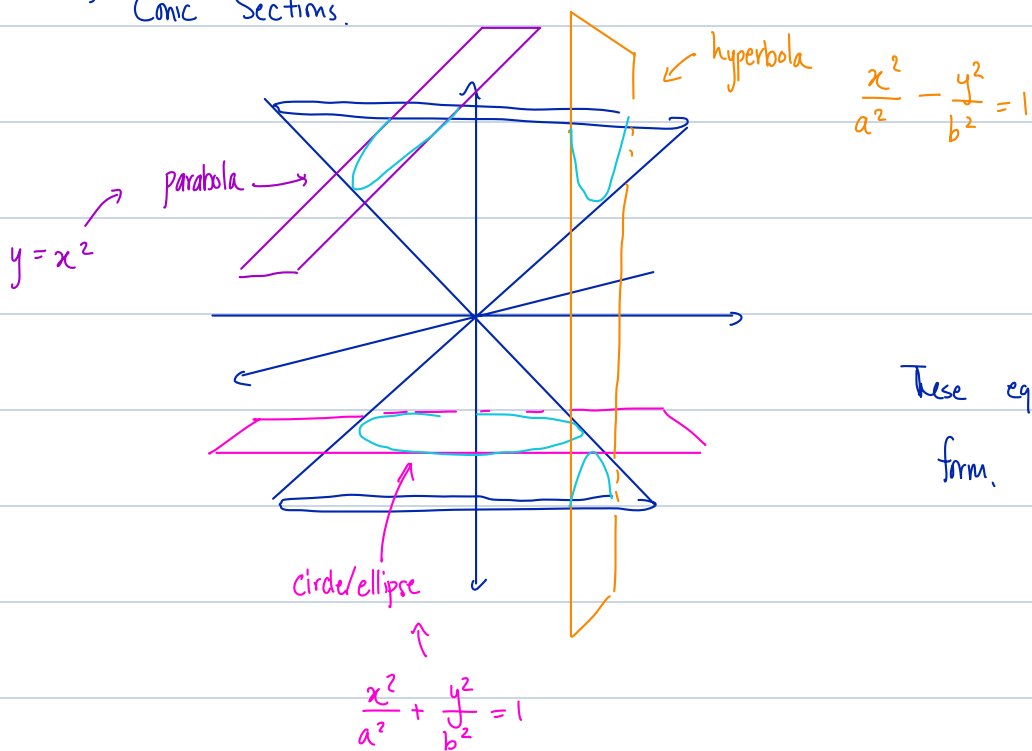 Conic Sections.
hyperbola
x²/a² − y²/b² = 1
parabola
y = x²
These eq
form.
circle/ellipse
x²/a² + y²/b² = 1